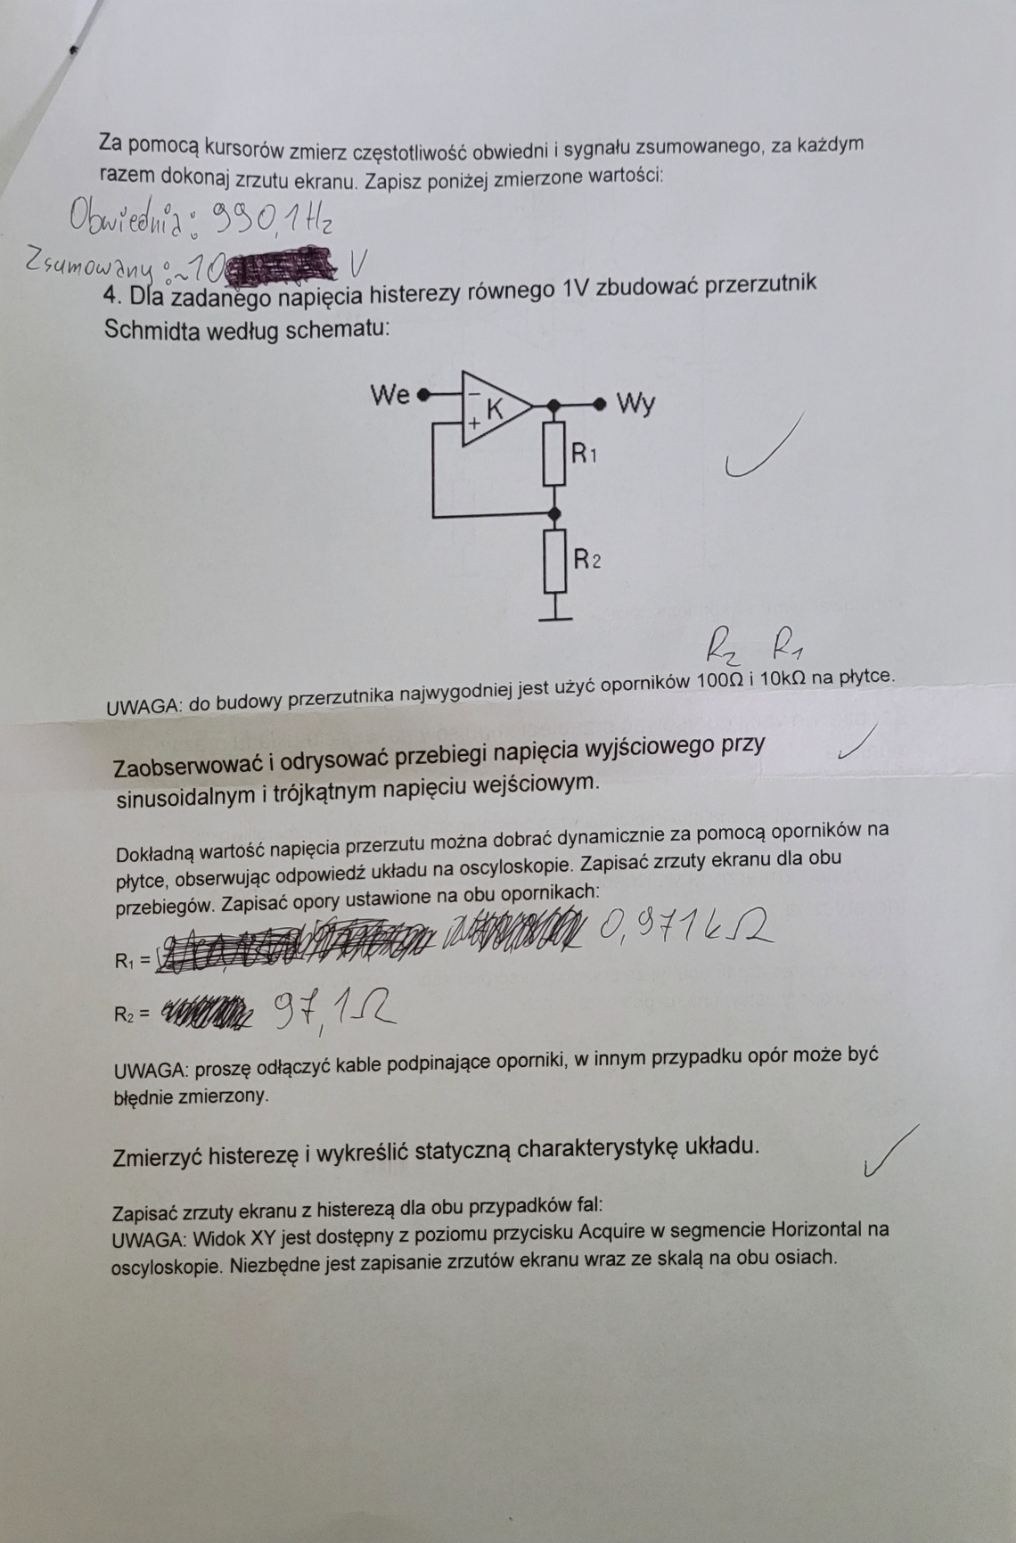 Za pomocą kursorów zmierz częstotliwość obwiedni i sygnału zsumowanego, za każdym
razem dokonaj zrzutu ekranu. Zapisz poniżej zmierzone wartości:
Obwiednia: 990,1Hz
Zsumowany: ~10 V
4. Dla zadanego napięcia histerezy równego 1V zbudować przerzutnik
Schmidta według schematu:
We
−
K
+
Wy
R1
R2
R2 R1
UWAGA: do budowy przerzutnika najwygodniej jest użyć oporników 100Ω i 10kΩ na płytce.
Zaobserwować i odrysować przebiegi napięcia wyjściowego przy
sinusoidalnym i trójkątnym napięciu wejściowym.
Dokładną wartość napięcia przerzutu można dobrać dynamicznie za pomocą oporników na
płytce, obserwując odpowiedź układu na oscyloskopie. Zapisać zrzuty ekranu dla obu
przebiegów. Zapisać opory ustawione na obu opornikach:
R1 = 0,971kΩ
R2 = 97,1Ω
UWAGA: proszę odłączyć kable podpinające oporniki, w innym przypadku opór może być
błędnie zmierzony.
Zmierzyć histerezę i wykreślić statyczną charakterystykę układu.
Zapisać zrzuty ekranu z histerezą dla obu przypadków fal:
UWAGA: Widok XY jest dostępny z poziomu przycisku Acquire w segmencie Horizontal na
oscyloskopie. Niezbędne jest zapisanie zrzutów ekranu wraz ze skalą na obu osiach.